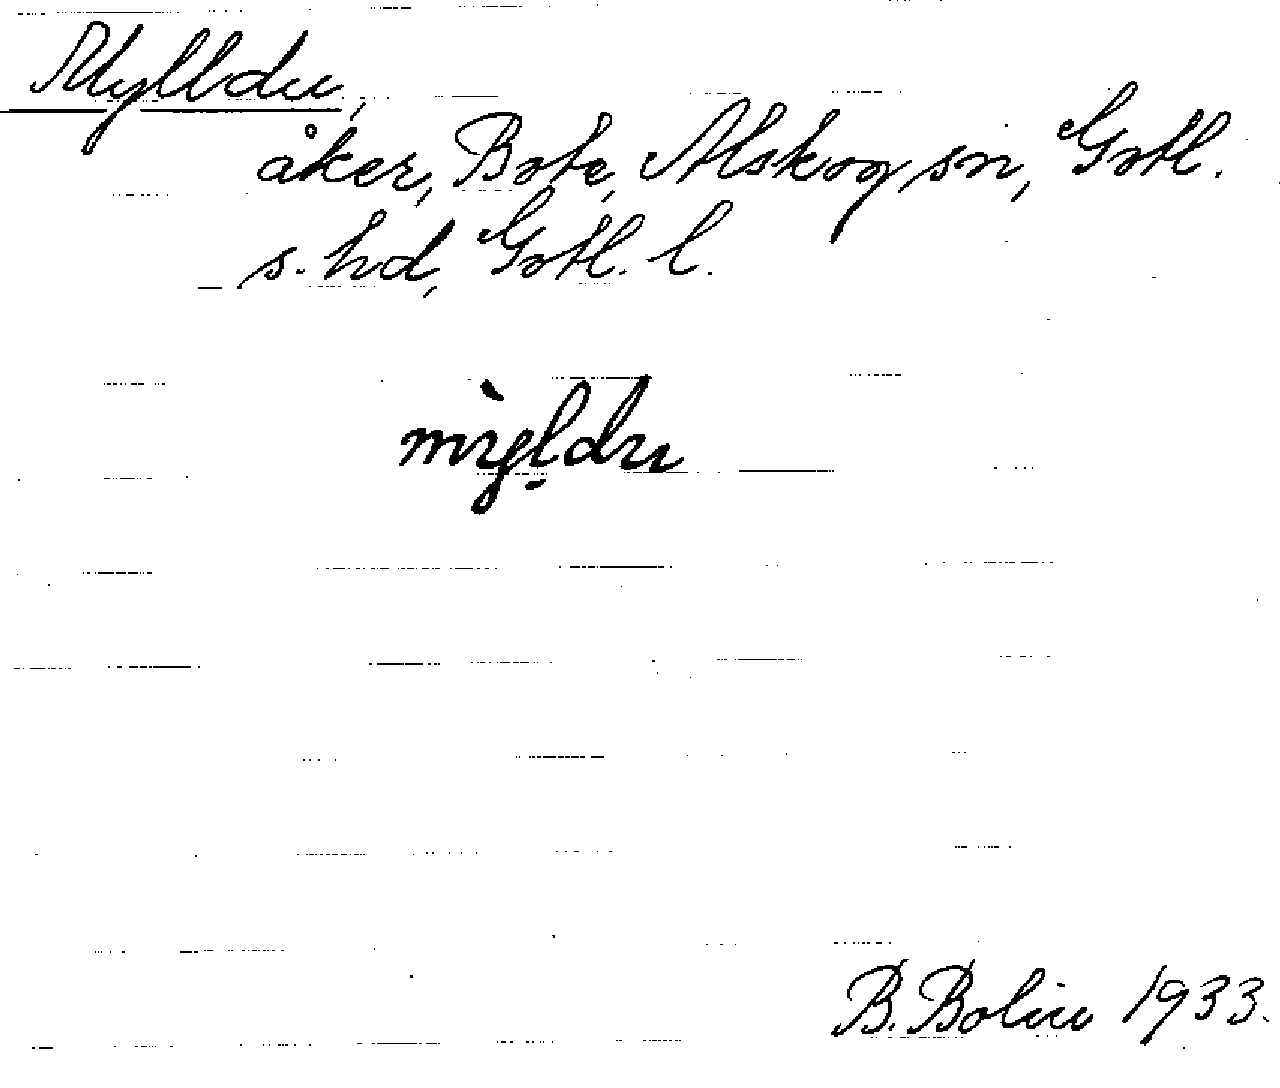 Mylldu,
åker, Bote, Alskog sn, Gotl.
s. hd, Gotl. l.
B. Bolin 1933.